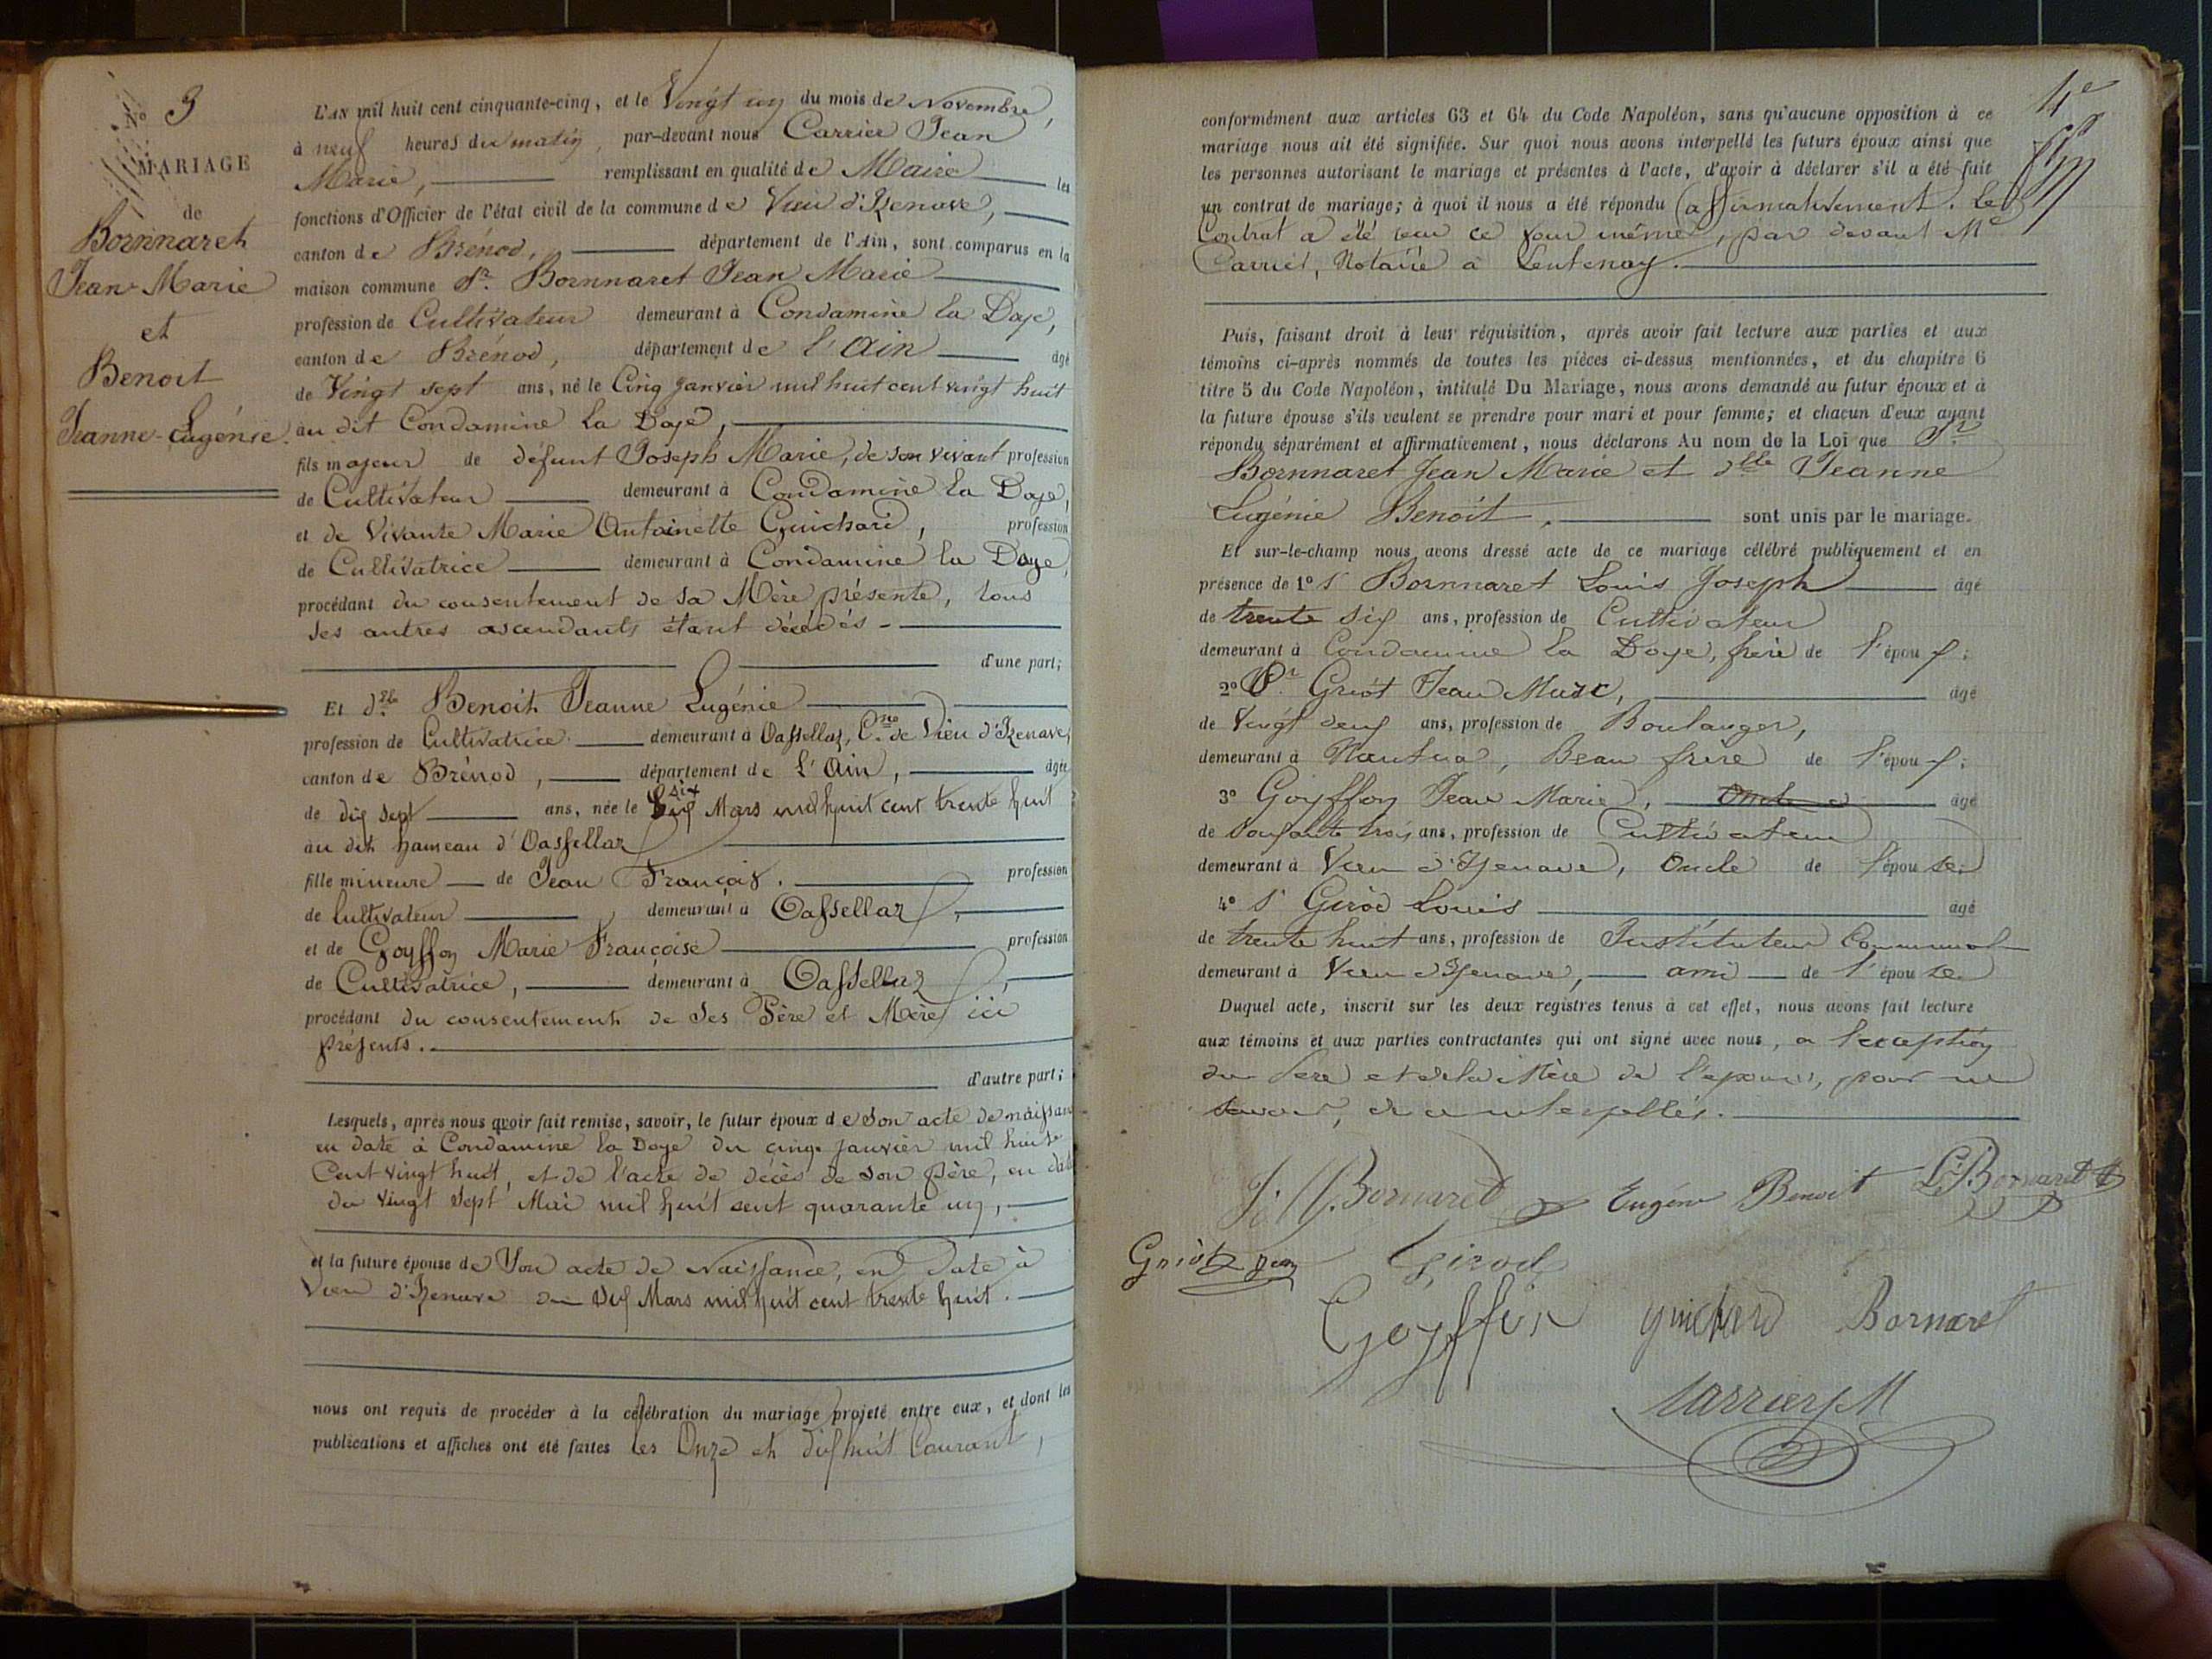 No 3
MARIAGE
de
Bornnaret
Jean-Marie
et
Benoit
Jeanne-Eugénie.
L'AN mil huit cent cinquante-cinq, et le Vingt un du mois de Novembre,
à neuf heures du matin, par-devant nous Carrier Jean
Marie, remplissant en qualité de Maire les
fonctions d'Officier de l'état civil de la commune de Vieu d'Izenave,
canton de Brénod, département de l'Ain, sont comparus en la
maison commune Sr. Bornnaret Jean Marie
profession de Cultivateur demeurant à Condamine la Doye,
canton de Brénod, département de l'Ain âgé
de Vingt sept ans, né le Cinq Janvier mil huit cent vingt huit
au dit Condamine la Doye,
fils majeur de défunt Joseph Marie, de son vivant profession
de Cultivateur demeurant à Condamine la Doye,
et de Vivante Marie Antoinette Guichard, profession
de Cultivatrice demeurant à Condamine la Doye,
procédant du consentement de sa Mère présente, tous
ses autres ascendants étant décédés -
d'une part;
Et dlle Benoit Jeanne Eugénie
profession de Cultivatrice demeurant à Oassellaz, Cne de Vieu d'Izenave,
canton de Brénod, département de L'Ain, âgée
de dix sept ans, née le six Mars mil huit cent trente huit
au dit hameau d'Oassellaz
fille mineure de Jean François. profession
de Cultivateur, demeurant à Oassellaz,
et de Goyffon Marie Françoise profession
de Cultivatrice, demeurant à Oassellaz,
procédant du consentement de ses Père et Mère ici
présents.
d'autre part;
Lesquels, après nous avoir fait remise, savoir, le futur époux de son acte de naissan
en date à Condamine la Doye du cinq Janvier mil huit
Cent vingt huit, et de l'acte de décès de son père, en date
du Vingt Sept Mai mil huit cent quarante un,
et la future épouse de Son acte de Naissance, en date à
Vieu d'Izenave du Six Mars mil huit cent trente huit.
nous ont requis de procéder à la célébration du mariage projeté entre eux, et dont les
publications et affiches ont été faites les Onze et dix huit Courant,
4e
conformément aux articles 63 et 64 du Code Napoléon, sans qu'aucune opposition à ce
mariage nous ait été signifiée. Sur quoi nous avons interpellé les futurs époux ainsi que
les personnes autorisant le mariage et présentes à l'acte, d'avoir à déclarer s'il a été fait
un contrat de mariage; à quoi il nous a été répondu affirmativement. Le
Contrat a été reçu ce jour même, par devant Me
Carrier, Notaire à Lentenay.
Puis, faisant droit à leur réquisition, après avoir fait lecture aux parties et aux
témoins ci-après nommés de toutes les pièces ci-dessus mentionnées, et du chapitre 6
titre 5 du Code Napoléon, intitulé Du Mariage, nous avons demandé au futur époux et à
la future épouse s'ils veulent se prendre pour mari et pour femme; et chacun d'eux ayant
répondu séparément et affirmativement, nous déclarons Au nom de la Loi que Sr
Bornnaret Jean Marie et dlle Jeanne
Eugénie Benoit, sont unis par le mariage.
Et sur-le-champ nous avons dressé acte de ce mariage célébré publiquement et en
présence de 1º S Bornnaret Louis Joseph âgé
de trente six ans, profession de Cultivateur
demeurant à Condamine la Doye, frère de l'époux;
2º Sr Griot Jean Marie, âgé
de Vingt neuf ans, profession de Boulanger,
demeurant à Nantua, Beau frère de l'époux;
3º Goyffon Jean Marie, Oncle âgé
de soixante trois ans, profession de Cultivateur
demeurant à Vieu d'Izenave, Oncle de l'épouse;
4º S Girod Louis âgé
de trente huit ans, profession de Instituteur Communal
demeurant à Vieu d'Izenave, ami de l'épouse.
Duquel acte, inscrit sur les deux registres tenus à cet effet, nous avons fait lecture
aux témoins et aux parties contractantes qui ont signé avec nous, a l'exception
du Père et de la Mère de l'épouse, pour ne
savoir, de ce interpellés.
J. M. Bornaret Eugénie Benoit L. Bornaret
Griot Jean Girod
Goyffon guichard Bornaret
Carrier JM